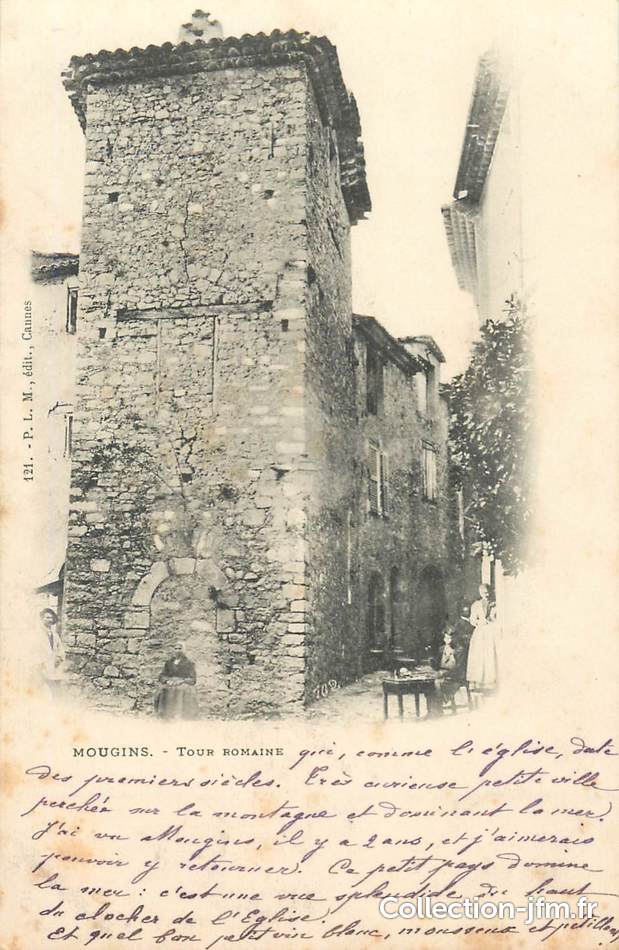 121. - P. L. M., édit., Cannes
102.
MOUGINS. - TOUR ROMAINE qui, comme l'église, date
des premiers siècles. Très curieuse petite ville
perchée sur la montagne et dominant la mer.
J'ai vu Mougins, il y a 2 ans, et j'aimerais
pouvoir y retourner. Ce petit pays domine
la mer : c'est une vue splendide du haut
du clocher de l'Eglise!
Et quel bon petit vin blanc, mousseux et pétillant
Collection-jfm.fr